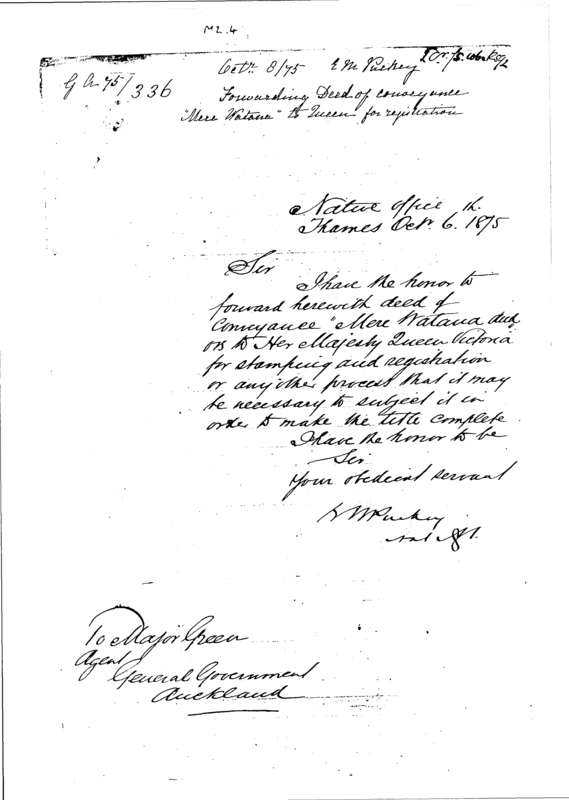 M2.4
Octr 8/75 E M Puckey
G A 75/336
Forwarding Deed of conveyance
"Mere Watana" to Queen for registration
Native Office
Thames Oct. 6. 1875
Sir
I have the honor to
forward herewith deed of
Conveyance "Mere Watana and
ors to Her Majesty Queen Victoria
for stamping and registration
or any other process that it may
be necessary to subject it in
order to make the title complete.
I have the honor to be
Sir
Your obedient servant
E W Puckey
Nat Agt.
To Major Green
Agent
General Government
Auckland